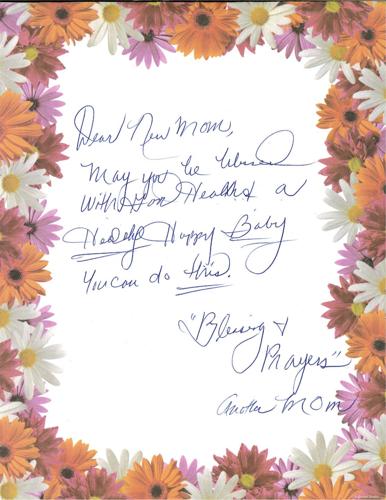 Dear New Mom,
May you be blessed
With Good Health & a
Healthy Happy Baby
You can do this.
"Blessing &
Prayers"
Another Mom